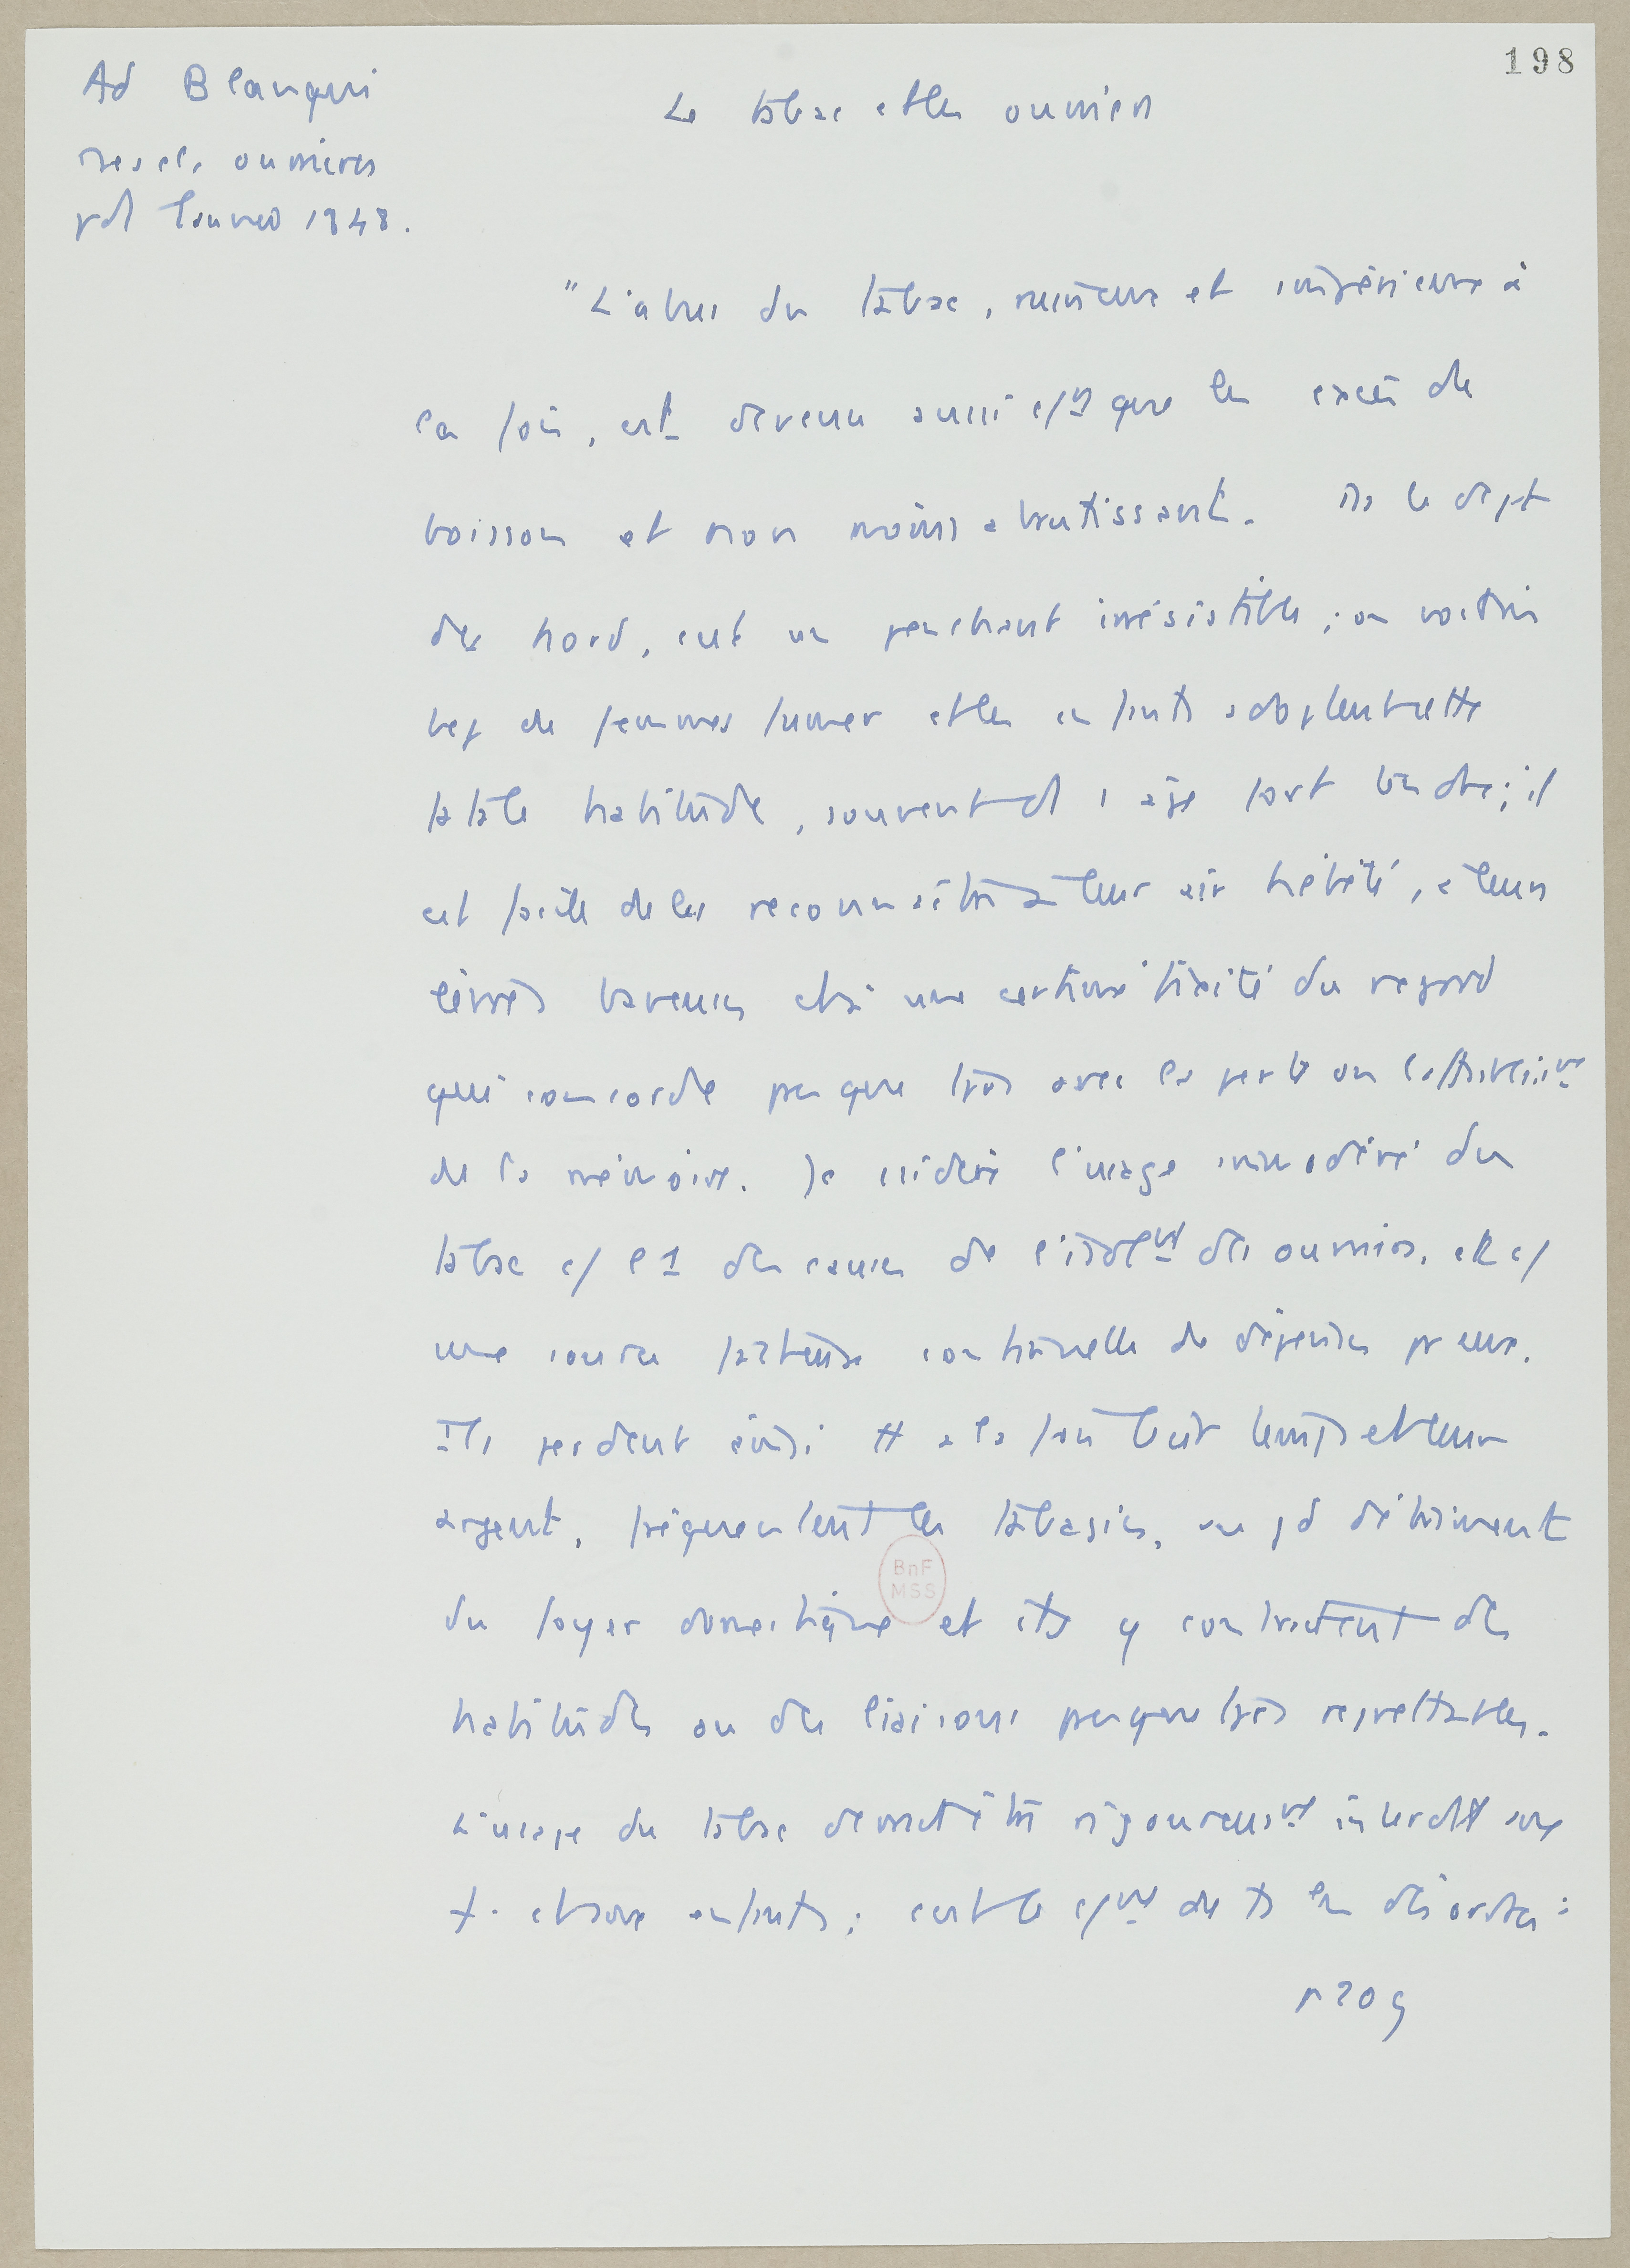 198
Ad Blanqui
des cl. ouvrières
pdt l'année 1848.
Le tabac et les ouvriers
"L'abus du tabac, ruineux et impérieux à
la fois, est devenu aussi c/mt que les excès de
boisson et non moins abrutissant. Ds le dépt
du Nord, c'est un penchant irrésistible ; on voit
bcp de femmes fumer et les enfants adoptent cette
fatale habitude, souvent ds l'âge fort tendre ; il
est facile de les reconnaître à leur air hébété, à leurs
lèvres baveuses et à une certaine fixité du regard
qui concorde presque tjrs avec la perte ou l'affaiblissmt
de la mémoire. Je considère l'usage immodéré du
tabac c/ l'1 des causes de l'isolmt des ouvriers, et c/
une source fâcheuse continuelle de dépenses pr eux.
Ils perdent ainsi tt à la fois leur temps et leur
argent, fréquentent les tabagies, au gd détriment
du foyer domestique et ils y contractent des
habitudes ou des liaisons presque tjrs regrettables.
L'usage du tabac devrait être rigoureusmt interdit aux
f. et aux enfants ; c'est le c/mt de ts les désordres :
p 209
BnF
MSS